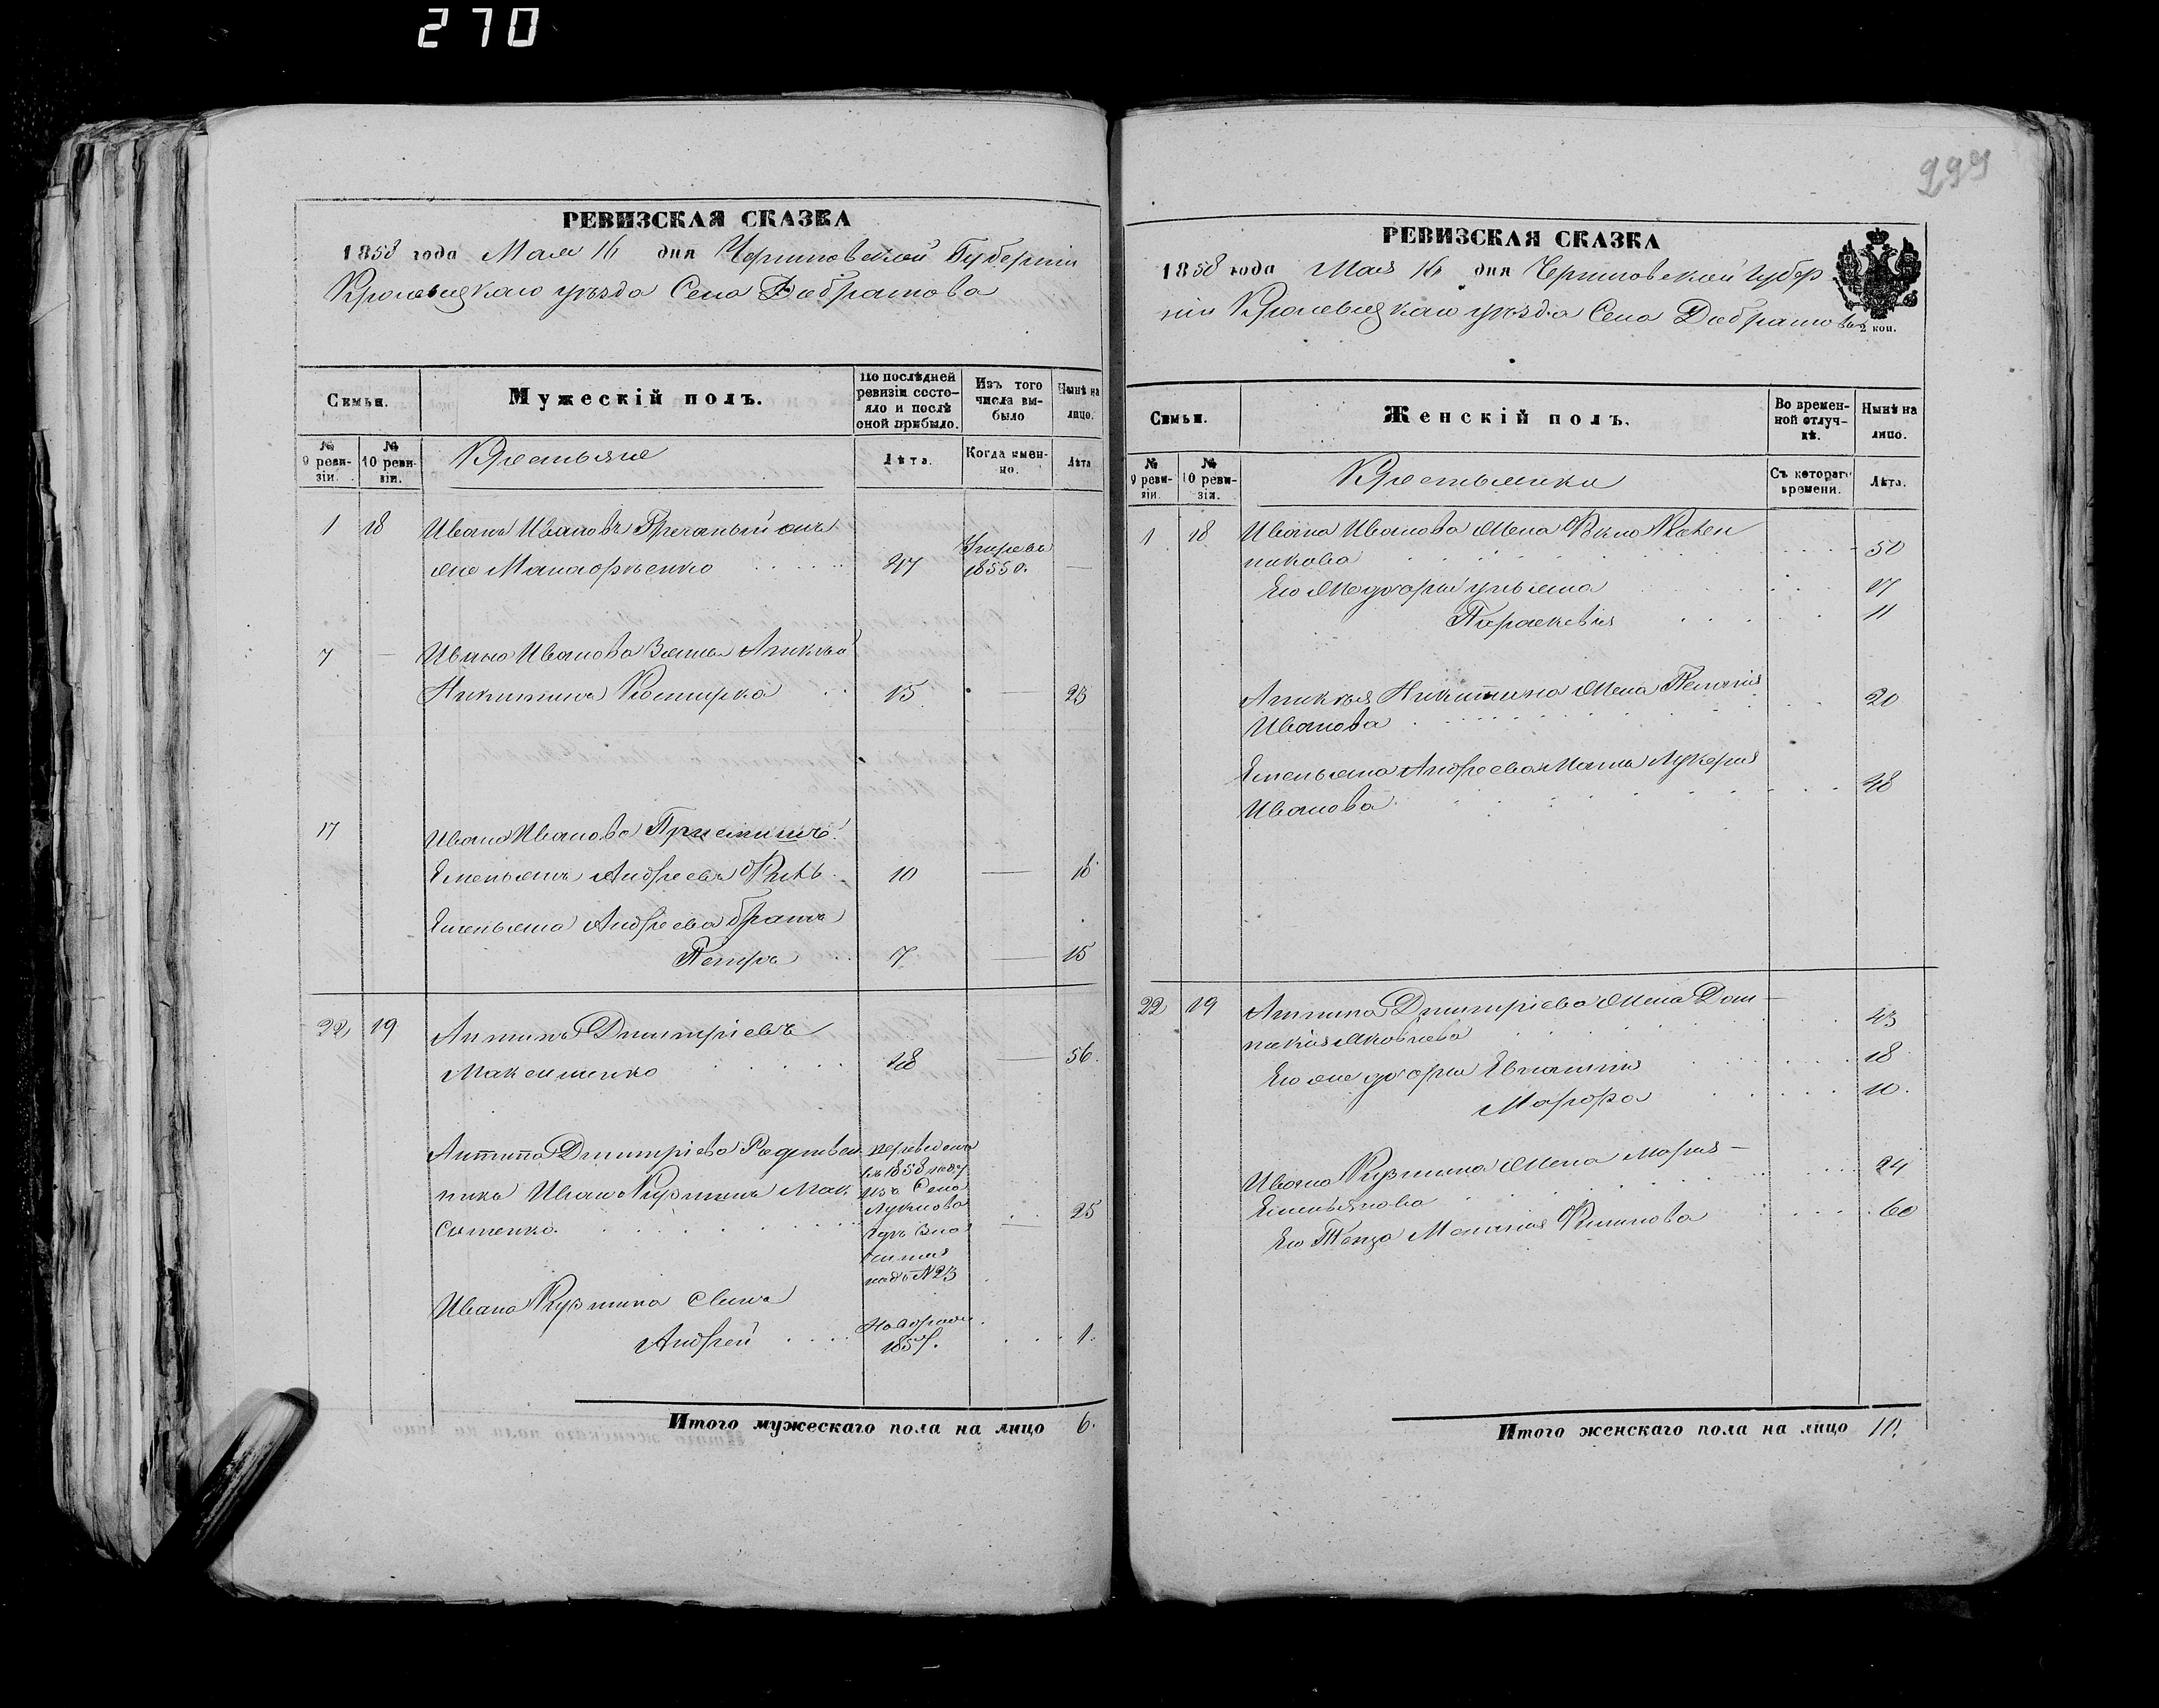 270
РЕВИЗСКАЯ СКАЗКА
1858 года Мая 16 дня Черниговской Губерніи
Кролевецкаго уѣзда Села Добратова
Семьи.
Мужескій полъ.
По послѣдней ревизіи состояло и послѣ оной прибыло.
Изъ того числа выбыло
Нынѣ на лицо.
№ 9 ревизіи.
№ 10 ревизіи.
Крестьяне
Лѣта.
Когда именно.
Лѣта
1 18 Иванъ Ивановъ Гречаный онъ
же 47 Умре въ 1855 г. —
7 — Ивана Иванова Зять Аникѣй
Никитинъ Костирка 15 — 23
17 Ивана Иванова
Емельянъ Андреевъ 10 — 18
Емельяна Андреева братъ
Петръ 7 — 15
22 19 Антипъ Дмитріевъ
Максименко 48 — 56.
Антипа Дмитріева Родствен
никъ Иванъ Кузминъ Мак
сименко. 25
переведенъ
въ 1858 году
изъ Села
подъ № 23
Ивана Кузмина Сынъ
Андрей 1.
1857.
Итого мужескаго пола на лицо 6.
299
РЕВИЗСКАЯ СКАЗКА
1858 года Мая 16 дня Черниговской Губер
ніи Кролевецкаго уѣзда Села Добратова
2 коп.
Семьи.
Женскій полъ.
Во временной отлучкѣ.
Нынѣ на лицо.
№ 9 ревизіи.
№ 10 ревизіи.
Крестьянки
Съ котораго времени.
Лѣта.
1 18 Ивана Иванова Жена
никова 50
Его дочери Ульяна 17
Параскевія 11
Аникѣя Никитина Жена Пелагія
Иванова 20
Емельяна Андреева Мать Лукерія
Иванова 48
22 19 Антипа Дмитріева Жена Дом
никія Яковлева 43
Его же дочери Евгенія 18
Марфа 10.
Ивана Кузмина Жена Марія
Емельянова 24
Его Теща Меланія Филипова 60
Итого женскаго пола на лицо 11.